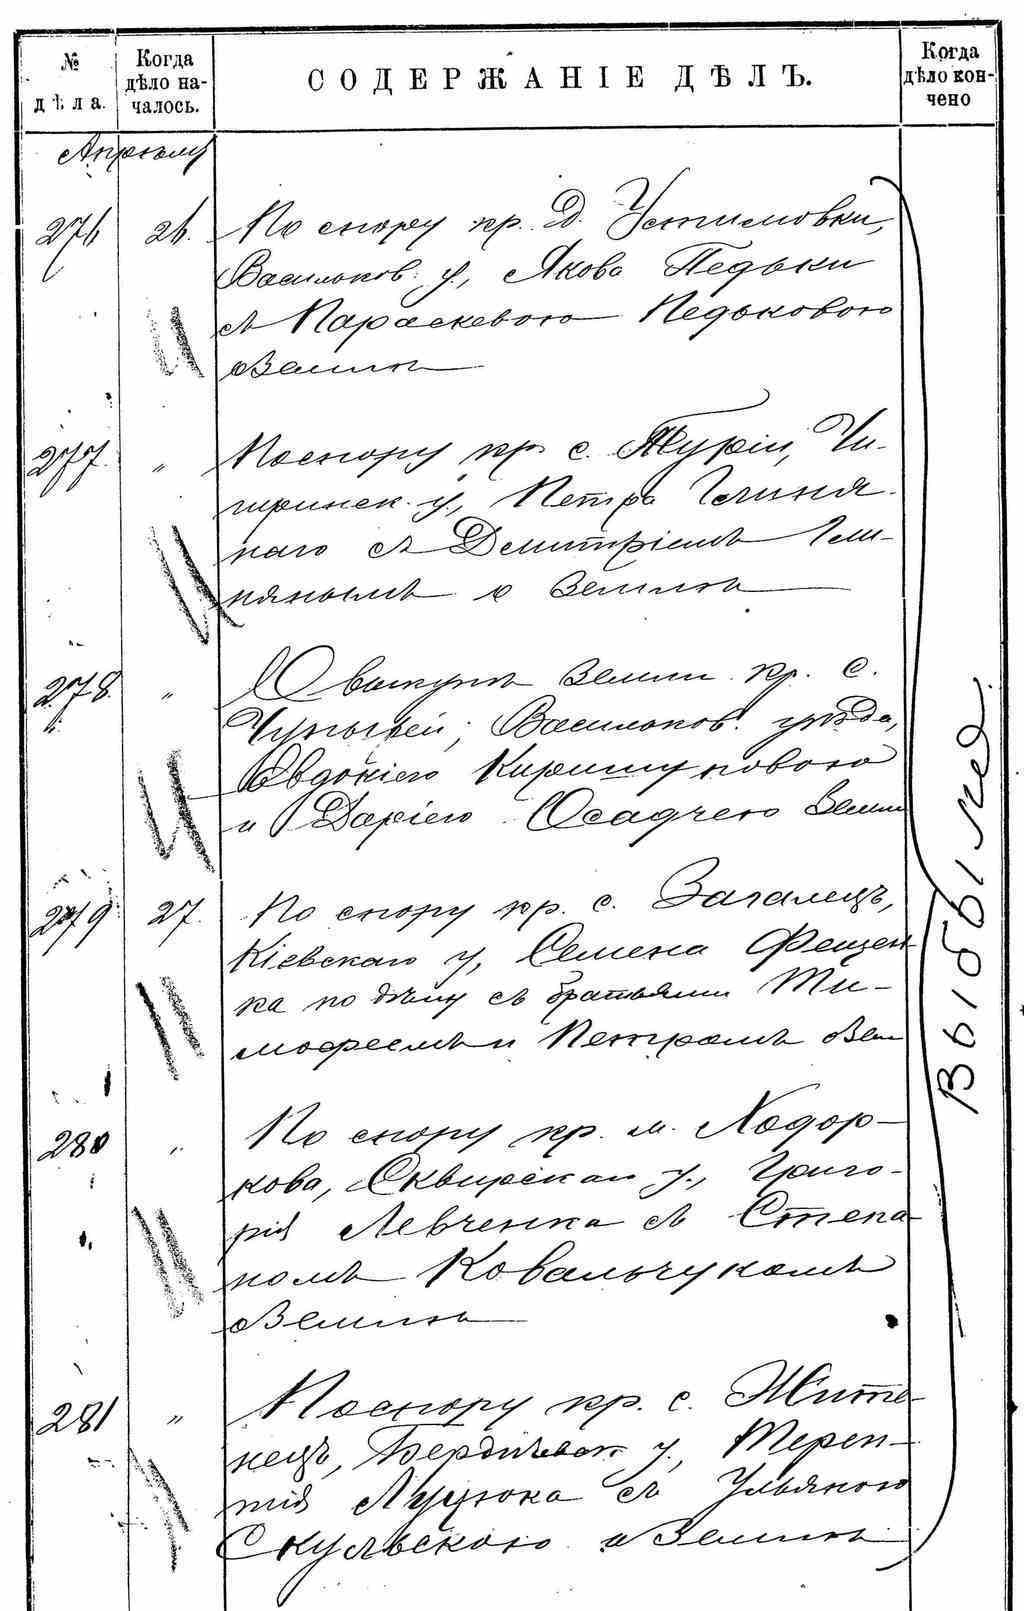 № дѣла.
Когда дѣло на-
чалось.
СОДЕРЖАНІЕ ДѢЛЪ.
Когда дѣло кон-
чено
Апрѣля
276 26. По спору кр. д. Устимовки,
Васильков. у., Якова Педьки
съ Параскевою Педьковою
о землѣ
277. „ По спору кр. с. Турiи, Чи-
гиринск. у., Петра
наго съ Дмитріемъ
о землѣ
278. „ О выкупѣ земли кр. с.
Васильков. уѣзда,
Евдокіею
и Даріею Осадчею земли
279 27. По спору кр. с. Загалецъ,
Кіевскаго у., Семена Фещен-
ка по дѣлу съ братьями Ти-
мофеемъ и Петромъ о зем
280 „ По спору кр. м. Ходор-
кова, Сквирскаго у., Григо-
рія Левченка съ Степа-
номъ Ковальчукомъ
о землѣ
281 „ По спору кр. с. Жите-
нецъ, Бердичевск. у., Терен-
тія съ Ульяною
Скульскою о землѣ
Выбыле